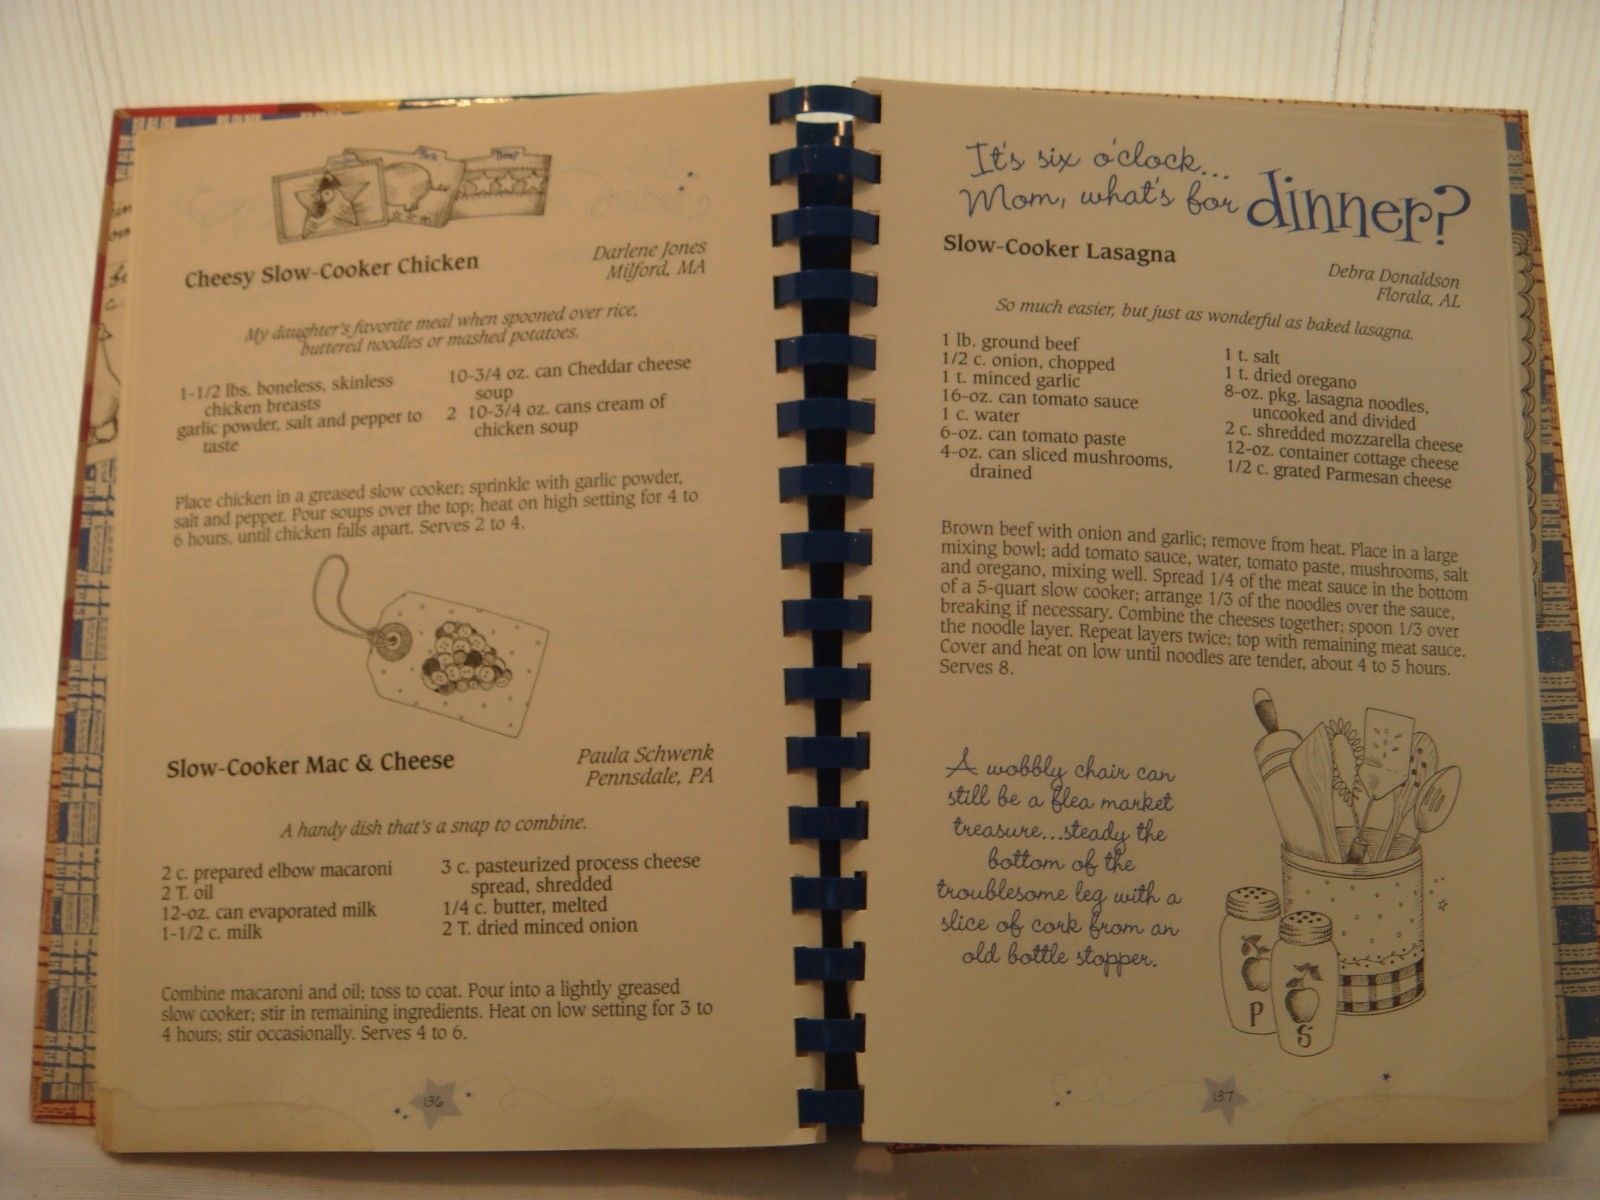 Pork
Beef
Cheesy Slow-Cooker Chicken
Darlene Jones
Milford, MA
My daughter's favorite meal when spooned over rice,
buttered noodles or mashed potatoes.
1-1/2 lbs. boneless, skinless
chicken breasts
garlic powder, salt and pepper to
taste
10-3/4 oz. can Cheddar cheese
soup
2 10-3/4 oz. cans cream of
chicken soup
Place chicken in a greased slow cooker; sprinkle with garlic powder,
salt and pepper. Pour soups over the top; heat on high setting for 4 to
6 hours, until chicken falls apart. Serves 2 to 4.
Slow-Cooker Mac & Cheese
Paula Schwenk
Pennsdale, PA
A handy dish that's a snap to combine.
2 c. prepared elbow macaroni
2 T. oil
12-oz. can evaporated milk
1-1/2 c. milk
3 c. pasteurized process cheese
spread, shredded
1/4 c. butter, melted
2 T. dried minced onion
Combine macaroni and oil; toss to coat. Pour into a lightly greased
slow cooker; stir in remaining ingredients. Heat on low setting for 3 to
4 hours; stir occasionally. Serves 4 to 6.
136
It's six o'clock...
Mom, what's for dinner?
Slow-Cooker Lasagna
Debra Donaldson
Florala, AL
So much easier, but just as wonderful as baked lasagna.
1 lb. ground beef
1/2 c. onion, chopped
1 t. minced garlic
16-oz. can tomato sauce
1 c. water
6-oz. can tomato paste
4-oz. can sliced mushrooms,
drained
1 t. salt
1 t. dried oregano
8-oz. pkg. lasagna noodles,
uncooked and divided
2 c. shredded mozzarella cheese
12-oz. container cottage cheese
1/2 c. grated Parmesan cheese
Brown beef with onion and garlic; remove from heat. Place in a large
mixing bowl; add tomato sauce, water, tomato paste, mushrooms, salt
and oregano, mixing well. Spread 1/4 of the meat sauce in the bottom
of a 5-quart slow cooker; arrange 1/3 of the noodles over the sauce,
breaking if necessary. Combine the cheeses together; spoon 1/3 over
the noodle layer. Repeat layers twice; top with remaining meat sauce.
Cover and heat on low until noodles are tender, about 4 to 5 hours.
Serves 8.
A wobbly chair can
still be a flea market
treasure...steady the
bottom of the
troublesome leg with a
slice of cork from an
old bottle stopper.
P
S
137